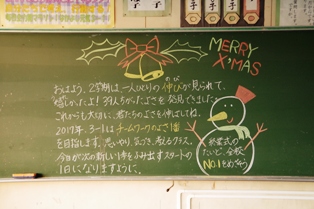 MERRY
X'MAS
おはよう。2学期は一人ひとりの伸びが見られて、
のび
うれしかったよ！39人分のよさを発見できました。
これからも大切に、君たちのよさを伸ばしてね。
2017年。3-1はチームワークのよさ1番
を目指します。思いやり、気づき、考えるクラス。
今日が次の新しい1年をふみ出すスタートの
1日になりますように。
終業式の
たいど、全校
NO.1をめざそう